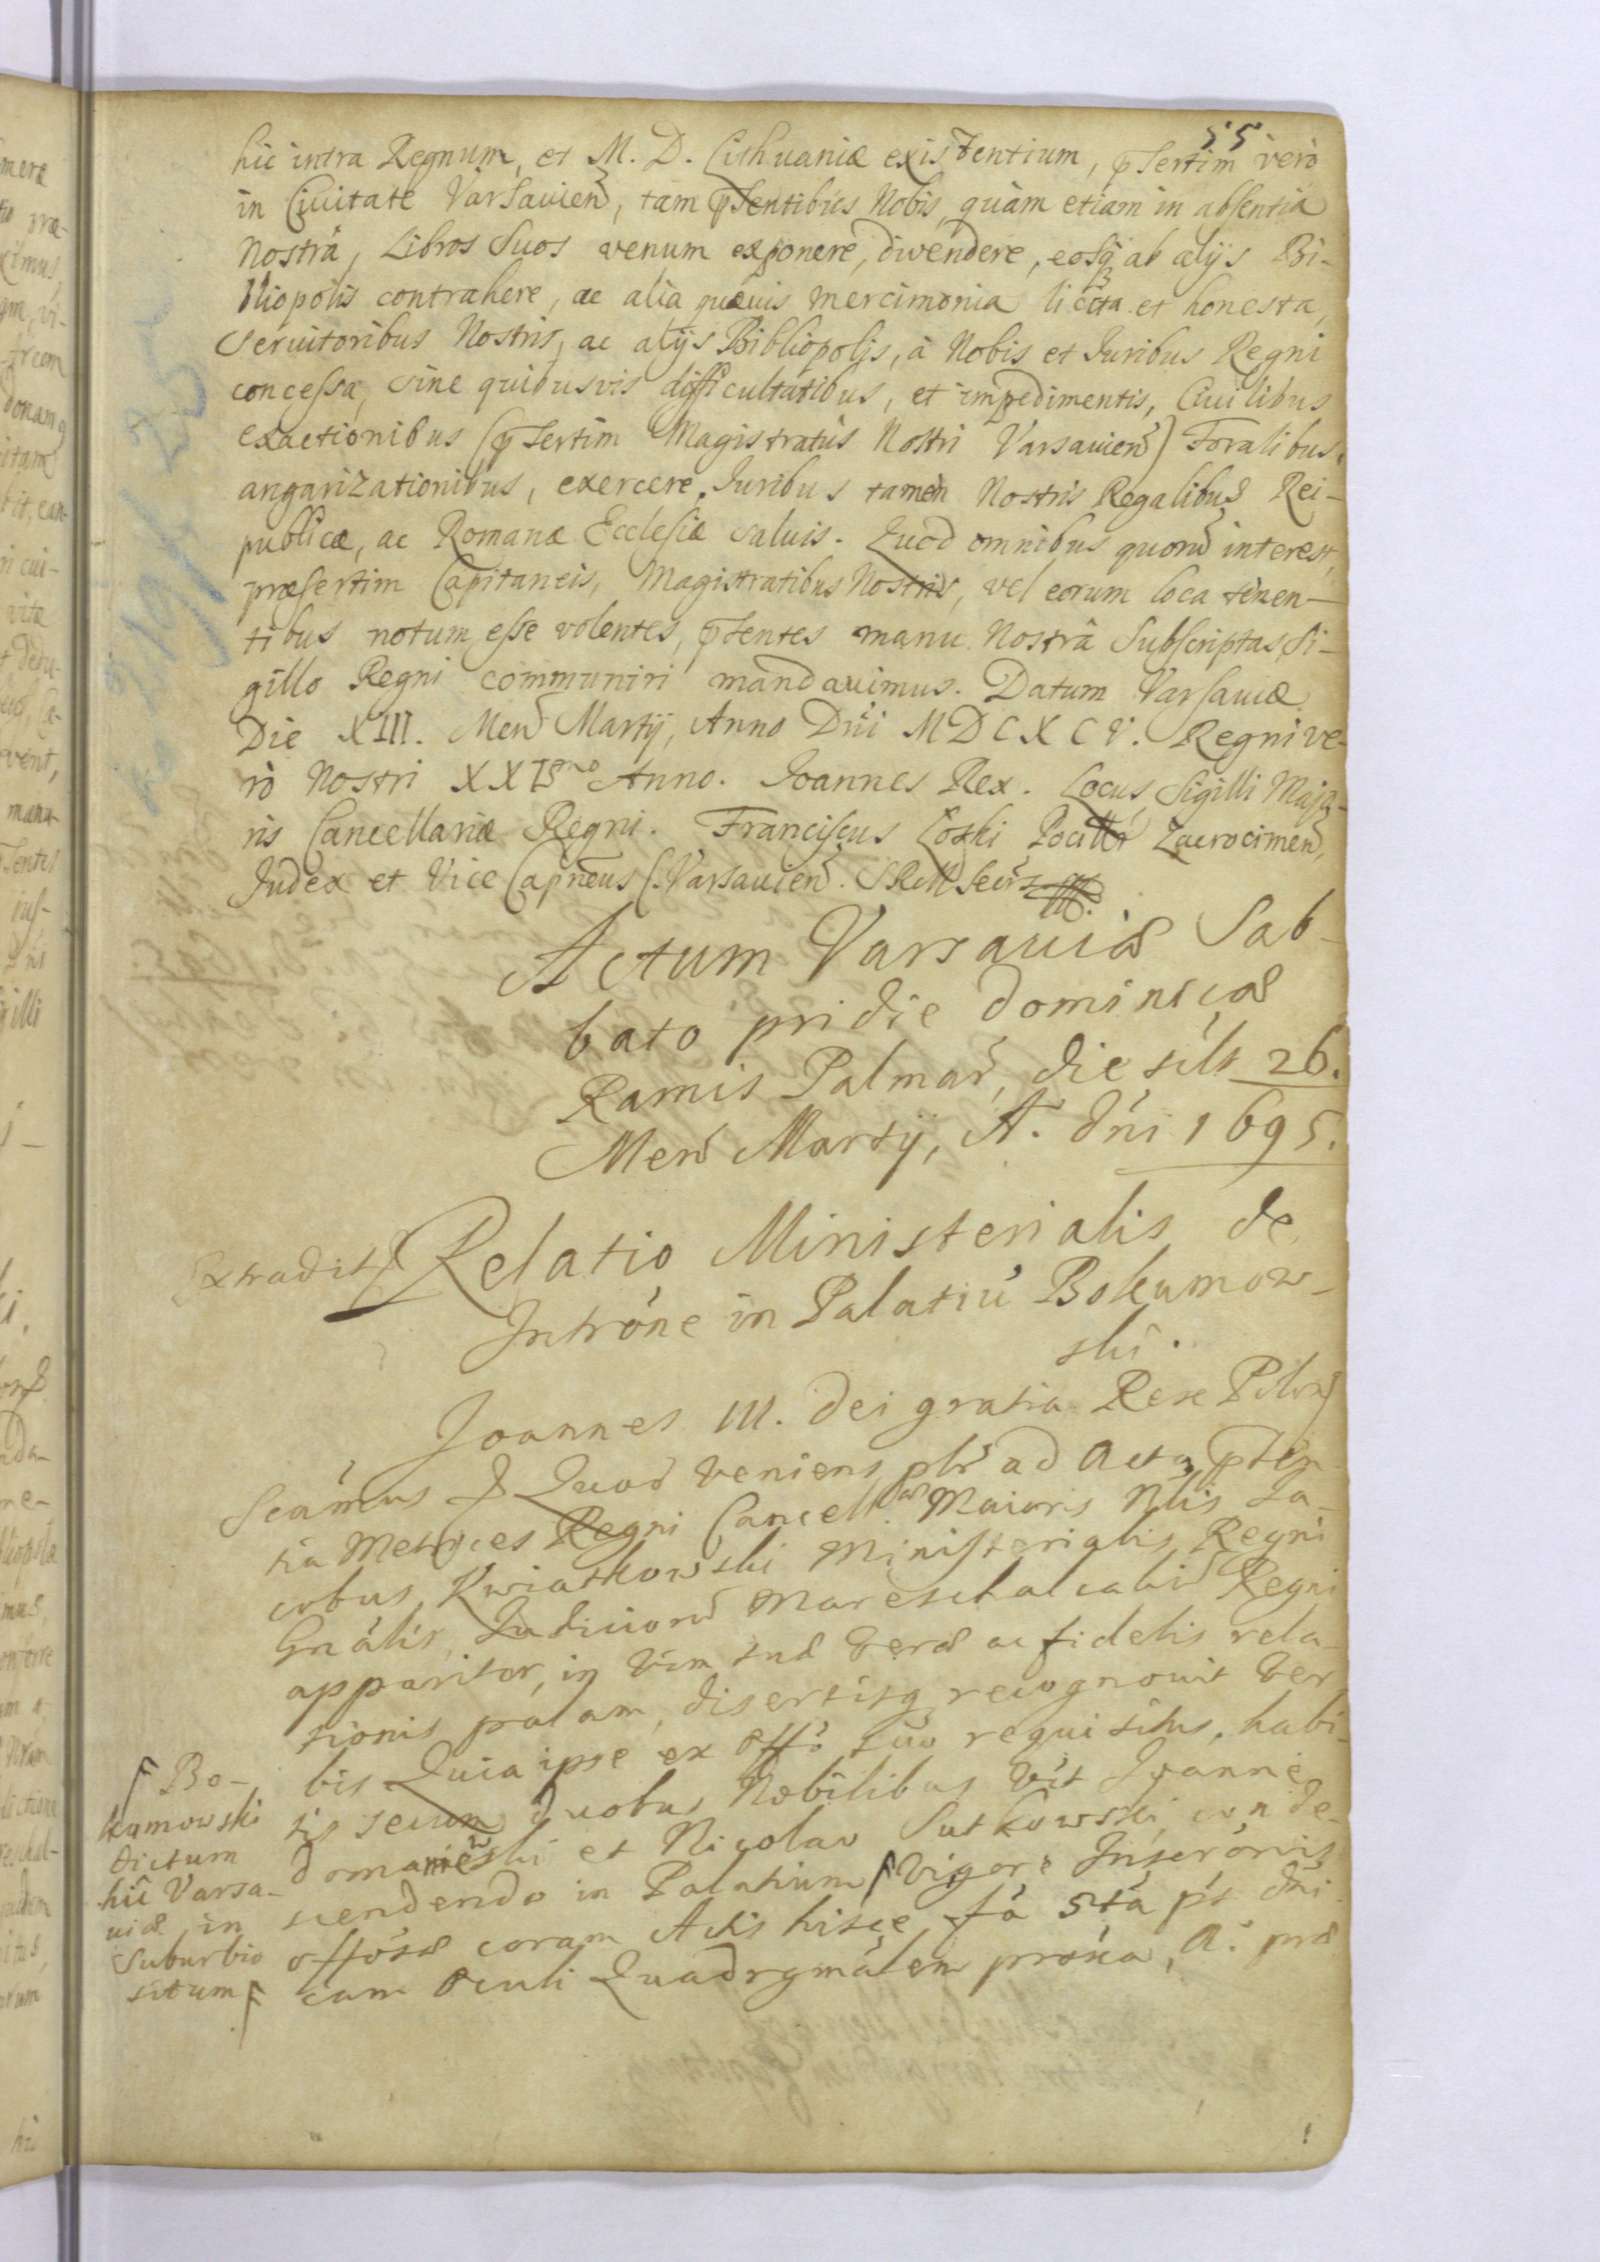 55
hic intra Regnum, et M. D. Lithuaniæ existentium, pſertim verò
in Ciuitate Varſauien, tam pſentibus Nobis, quàm etiam in abſentia
Noſtrâ, Libros Suos venum exponere, divendere, eosq ab alijs Bi-
bliopolis contrahere, ac alia quæuis mercimonia licita et honesta,
Seruitoribus Nostris, ac alijs Bibliopolis, à Nobis et Iuribus Regni
conceſsa, sine quibusvis difficultatibus, et impedimentis, Ciuilibus
exactionibus (pſertim Magistratûs Nostri Varsauien) Foralibus,
angarizationibus, exercere. Iuribus tamen Nostris Regalibus Rei-
publicæ, ac Romanæ Eccleſiæ saluis. Quod omnibus quorũ interest,
præſertim Capitaneis, Magistratibus Nostris, vel eorum loca tenen-
tibus notum eſse volentes, pſentes manu Nostrâ Subſcriptas, Si-
gillo Regni communiri mandauimus. Datum Varſauiæ
Die XIII. Men Martij, Anno Dni MDCXCV. Regni ve-
rò Nostri XXI Anno. Ioannes Rex. Locus Sigilli Majo-
ris Cancellariæ Regni. Franciſcus Łoski Zacrocimen,
Judex et Vice Capneus C. Varsauien. SRM Secrs
Actum Varsauiæ Sab-
bato pridie dominicæ
Ramis Palmar, die scilt 26.
Men Martij, A. dni 1695.
Extradit
Relatio Ministerialis de
Introne in Palatiũ Bokumow-
ski.
Joannes III. Dei gratia Rex Polon
Scamus & Quod veniens plr ad Acta pſen-
tia Metrices Regni Cancell Maioris Nbis Ja-
cobus Kwiatkowski Ministerialis Regni
Gnalis, Judiciorũ Mareschalcaliũ Regni
apparitor, in vim suæ veræ ac fidelis rela-
tionis palam, disertisq recognouit ver
bis Quia ipse ex offo suo requisitus, habi-
tis secum duobus Nobilibus Vrt Joanne
domaniewski et Nicolao Sutkowski, conde-
scendendo in Palatium Γ vigore Inscronis
offosæ coram Actis hisce fa 5ta pt dni
cam Oculi Quadrgmalem proxa, A. præ
Γ Bo-
kumowski
dictum
hic Varsa-
uiæ in
Suburbio
situm Γ